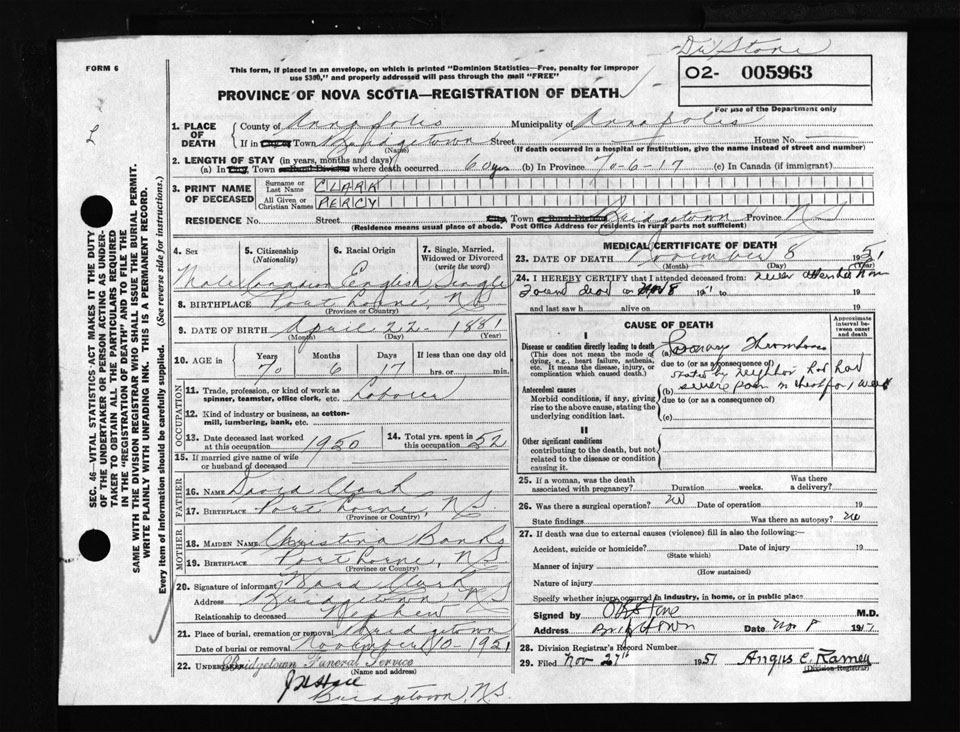 Dr Stone
FORM 6
This form, if placed in an envelope, on which is printed "Dominion Statistics—Free, penalty for improper
use $300," and properly addressed will pass through the mail "FREE"
02- 005963
PROVINCE OF NOVA SCOTIA—REGISTRATION OF DEATH
For use of the Department only
1. PLACE OF DEATH County of Annapolis Municipality of Annapolis
If in City Town Bridgetown Street House No.
(Name) (If death occurred in a hospital or institution, give the name instead of street and number)
2. LENGTH OF STAY (in years, months and days)
(a) In City, Town or Rural Division where death occurred 60 yrs (b) In Province 70-6-17 (c) In Canada (if immigrant)
3. PRINT NAME OF DECEASED Surname or Last Name CLARK
All Given or Christian Names PERCY
RESIDENCE No. Street City, Town or Rural Division Bridgetown Province N.S
(Residence means usual place of abode. Post Office Address for residents in rural parts not sufficient)
4. Sex 5. Citizenship (Nationality) 6. Racial Origin 7. Single, Married, Widowed or Divorced (write the word)
Male Canadian English Single
8. BIRTHPLACE Port Lorne, N.S
(Province or Country)
9. DATE OF BIRTH April 22 1881
(Month) (Day) (Year)
10. AGE in Years Months Days If less than one day old
70 6 17 hrs. or min.
OCCUPATION
11. Trade, profession, or kind of work as spinner, teamster, office clerk, etc. Laborer
12. Kind of industry or business, as cotton-mill, lumbering, bank, etc.
13. Date deceased last worked at this occupation 1950 14. Total yrs. spent in this occupation 52
15. If married give name of wife or husband of deceased
FATHER
16. NAME David Clark
17. BIRTHPLACE Port Lorne, N.S.
(Province or Country)
MOTHER
18. MAIDEN NAME Christina Banks
19. BIRTHPLACE Port Lorne, N.S
(Province or Country)
20. Signature of informant Ward Clark
Address Bridgetown N.S
Relationship to deceased Nephew
21. Place of burial, cremation or removal Bridgetown
Date of burial or removal November 10-1951
22. UNDERTAKER Bridgetown Funeral Service
(Name and address)
Bridgetown, N.S.
MEDICAL CERTIFICATE OF DEATH
23. DATE OF DEATH November 8 1951
(Month) (Day) (Year)
24. I HEREBY CERTIFY that I attended deceased from:
Found dead on Nov 8 19
and last saw h alive on 19
CAUSE OF DEATH
Approximate interval between onset and death
I
Disease or condition directly leading to death
(This does not mean the mode of dying, e.g., heart failure, asthenia, etc. It means the disease, injury, or complication which caused death.)
(a) Coronary Thrombosis
due to (or as a consequence of)
stated by neighbor he had
(b) severe pain in chest for 1 week
Antecedent causes
Morbid conditions, if any, giving rise to the above cause, stating the underlying condition last.
due to (or as a consequence of)
(c)
II
Other significant conditions
contributing to the death, but not related to the disease or condition causing it.
25. If a woman, was the death associated with pregnancy? Duration weeks. Was there a delivery?
26. Was there a surgical operation? No Date of operation 19
State findings Was there an autopsy? No
27. If death was due to external causes (violence) fill in also the following:—
Accident, suicide or homicide? Date of injury 19
(State which)
Manner of injury
(How sustained)
Nature of injury
Specify whether injury occurred in industry, in home, or in public place
Signed by M.D.
Address Bridgetown Date Nov 8 19
28. Division Registrar's Record Number
29. Filed Nov 27th 1951 Angus C. Ramey
(Division Registrar)
SEC. 46—VITAL STATISTICS ACT MAKES IT THE DUTY
OF THE UNDERTAKER OR PERSON ACTING AS UNDER-
TAKER TO OBTAIN ALL THE PARTICULARS REQUIRED
IN THE "REGISTRATION OF DEATH" AND TO FILE THE
SAME WITH THE DIVISION REGISTRAR WHO SHALL ISSUE THE BURIAL PERMIT.
WRITE PLAINLY WITH UNFADING INK. THIS IS A PERMANENT RECORD.
Every item of information should be carefully supplied. (See reverse side for instructions.)